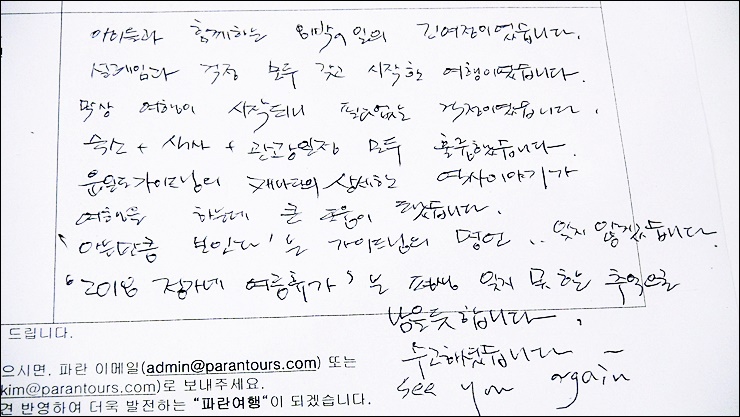 아이들과 함께하는 8박9일의 긴여정이었습니다.
설레임과 걱정 모두 갖고 시작한 여행이었습니다.
막상 여행이 시작되니 필요없는 걱정이었습니다.
숙소 + 식사 + 관광일정 모두 훌륭했습니다.
가이드님의 캐나다의 상세한 역사이야기가
여행을 하는데 큰 도움이 됐습니다.
'아는만큼 보인다' 는 가이드님의 명언.. 잊지 않겠습니다.
'2018 정가네 여름휴가' 는 평생 잊지 못하는 추억으로
남을듯합니다.
수고하셨습니다
see you again
드립니다.
으시면, 파란 이메일(admin@parantours.com) 또는
kim@parantours.com)로 보내주세요.
견 반영하여 더욱 발전하는 "파란여행"이 되겠습니다.